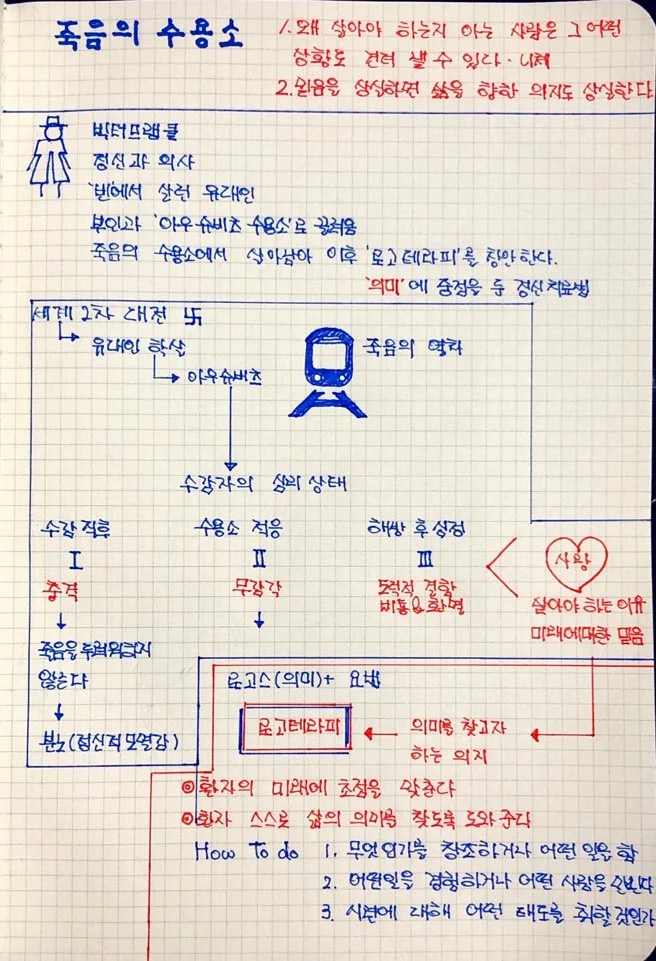 죽음의 수용소
1. 왜 살아야 하는지 아는 사람은 그 어떤
상황도 견뎌 낼 수 있다. 니체
2. 믿음을 상실하면 삶을 향한 의지도 상실한다
빅터프랭클
정신과 의사
'빈에서 살던 유대인
부인과 '아우슈비츠 수용소'로 끌려옴
죽음의 수용소에서 살아남아 이후 '로고테라피'를 창안한다.
'의미'에 중점을 둔 정신치료법
세계 2차 대전 卐
유대인 학살
아우슈비츠
죽음의 열차
수감자의 심리 상태
수감 직후
수용소 적응
해방 후 심정
I
II
III
충격
무감각
도덕적 결함
비통 & 환멸
사랑
살아야 하는 이유
미래에대한 믿음
죽음을 두려워하지
않는다
분노(정신적 모멸감)
로고스(의미)+ 요법
로고테라피
의미를 찾고자
하는 의지
◎환자의 미래에 초점을 맞춘다
◎환자 스스로 삶의 의미를 찾도록 도와준다
How To do
1. 무엇인가를 창조하거나 어떤 일을 함
2. 어떤일을 경험하거나 어떤 사람을 만난다
3. 시련에 대해 어떤 태도를 취할것인가